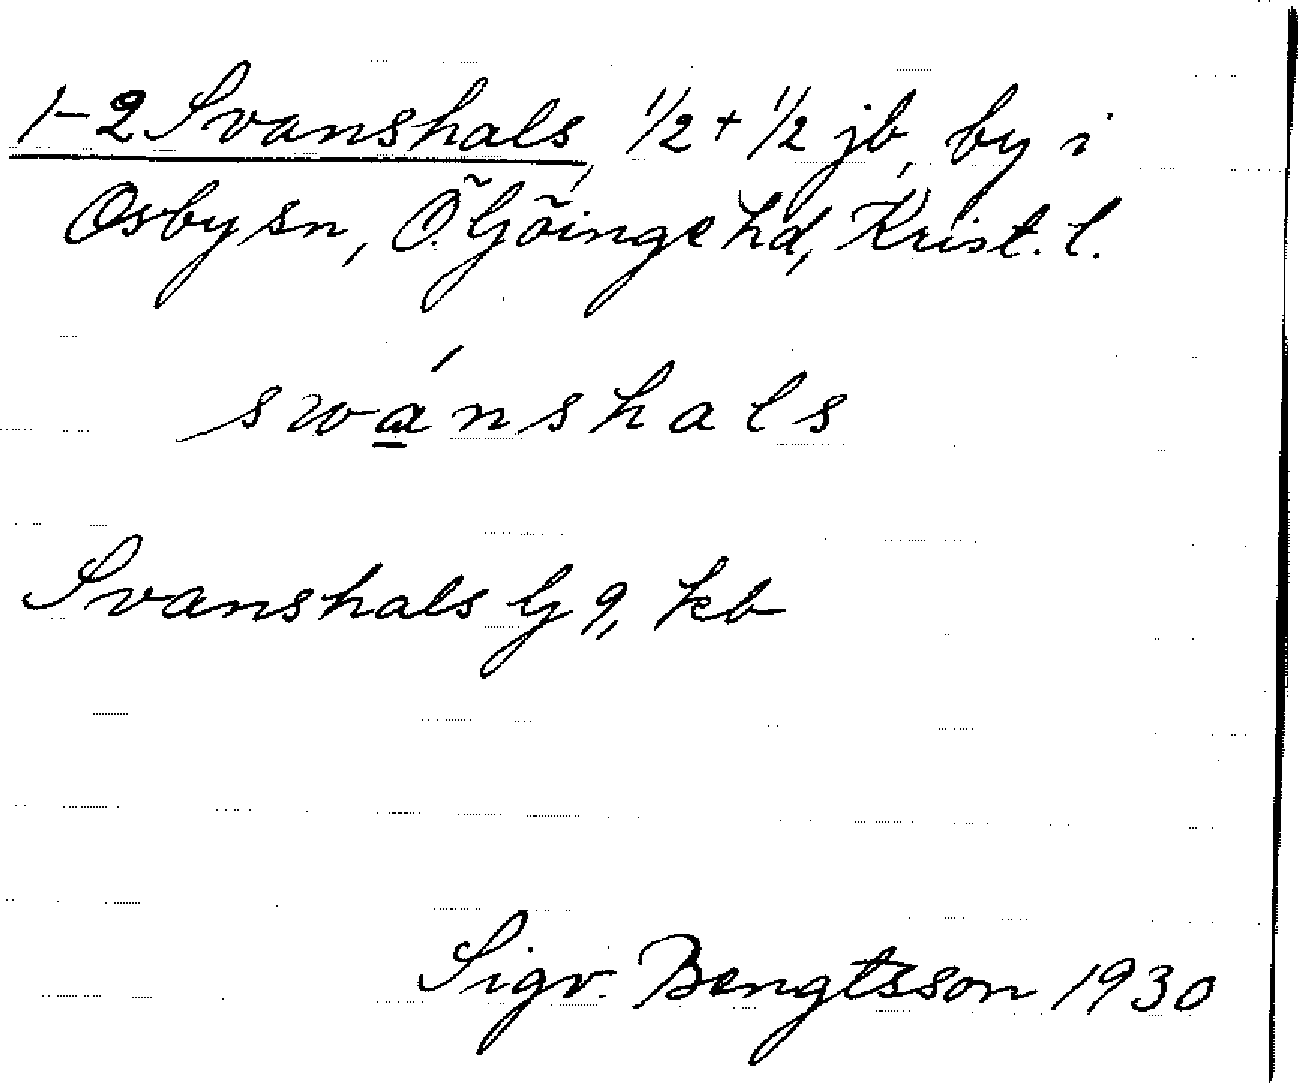 1-2 Svanshals, 1/2 + 1/2 jb, by i
Osby sn, Ö. Göinge hd, Krist. l.
swánshals
Svanshals G 9, kb
Sigv. Bengtsson 1930